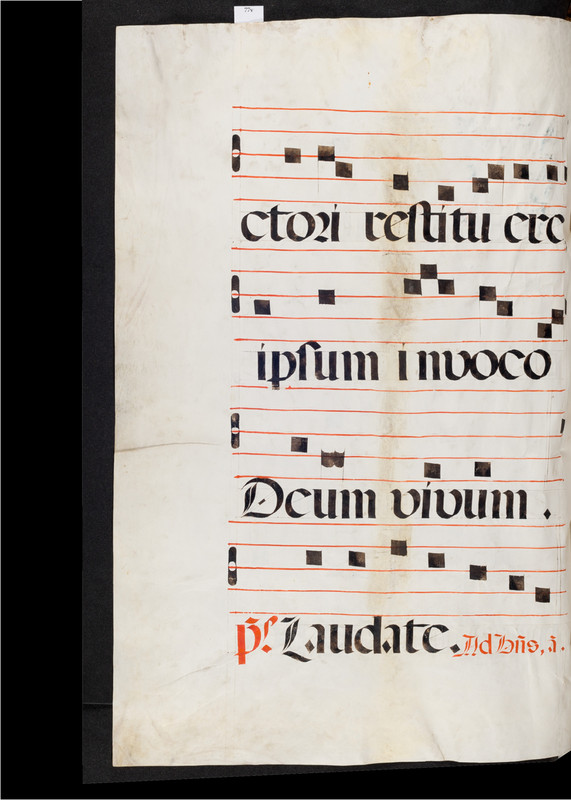 ctori restitu ere
ipsum invoco
Deum vivum.
ps. Laudate. Ad Bñs, ã.